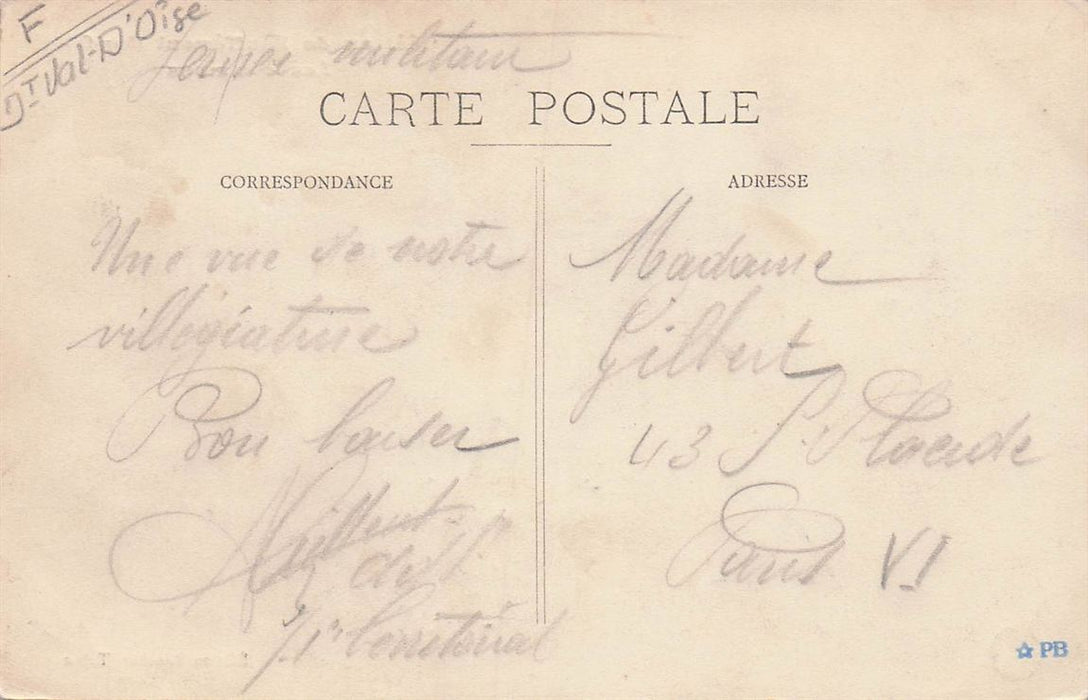 F
Dt Val-D'Oise
militaire
CARTE POSTALE
CORRESPONDANCE
Une vue de notre
villégiature
Bon baiser
Gilbert
71e territorial
ADRESSE
Madame
Gilbert
43 St Placide
Paris VI
PB